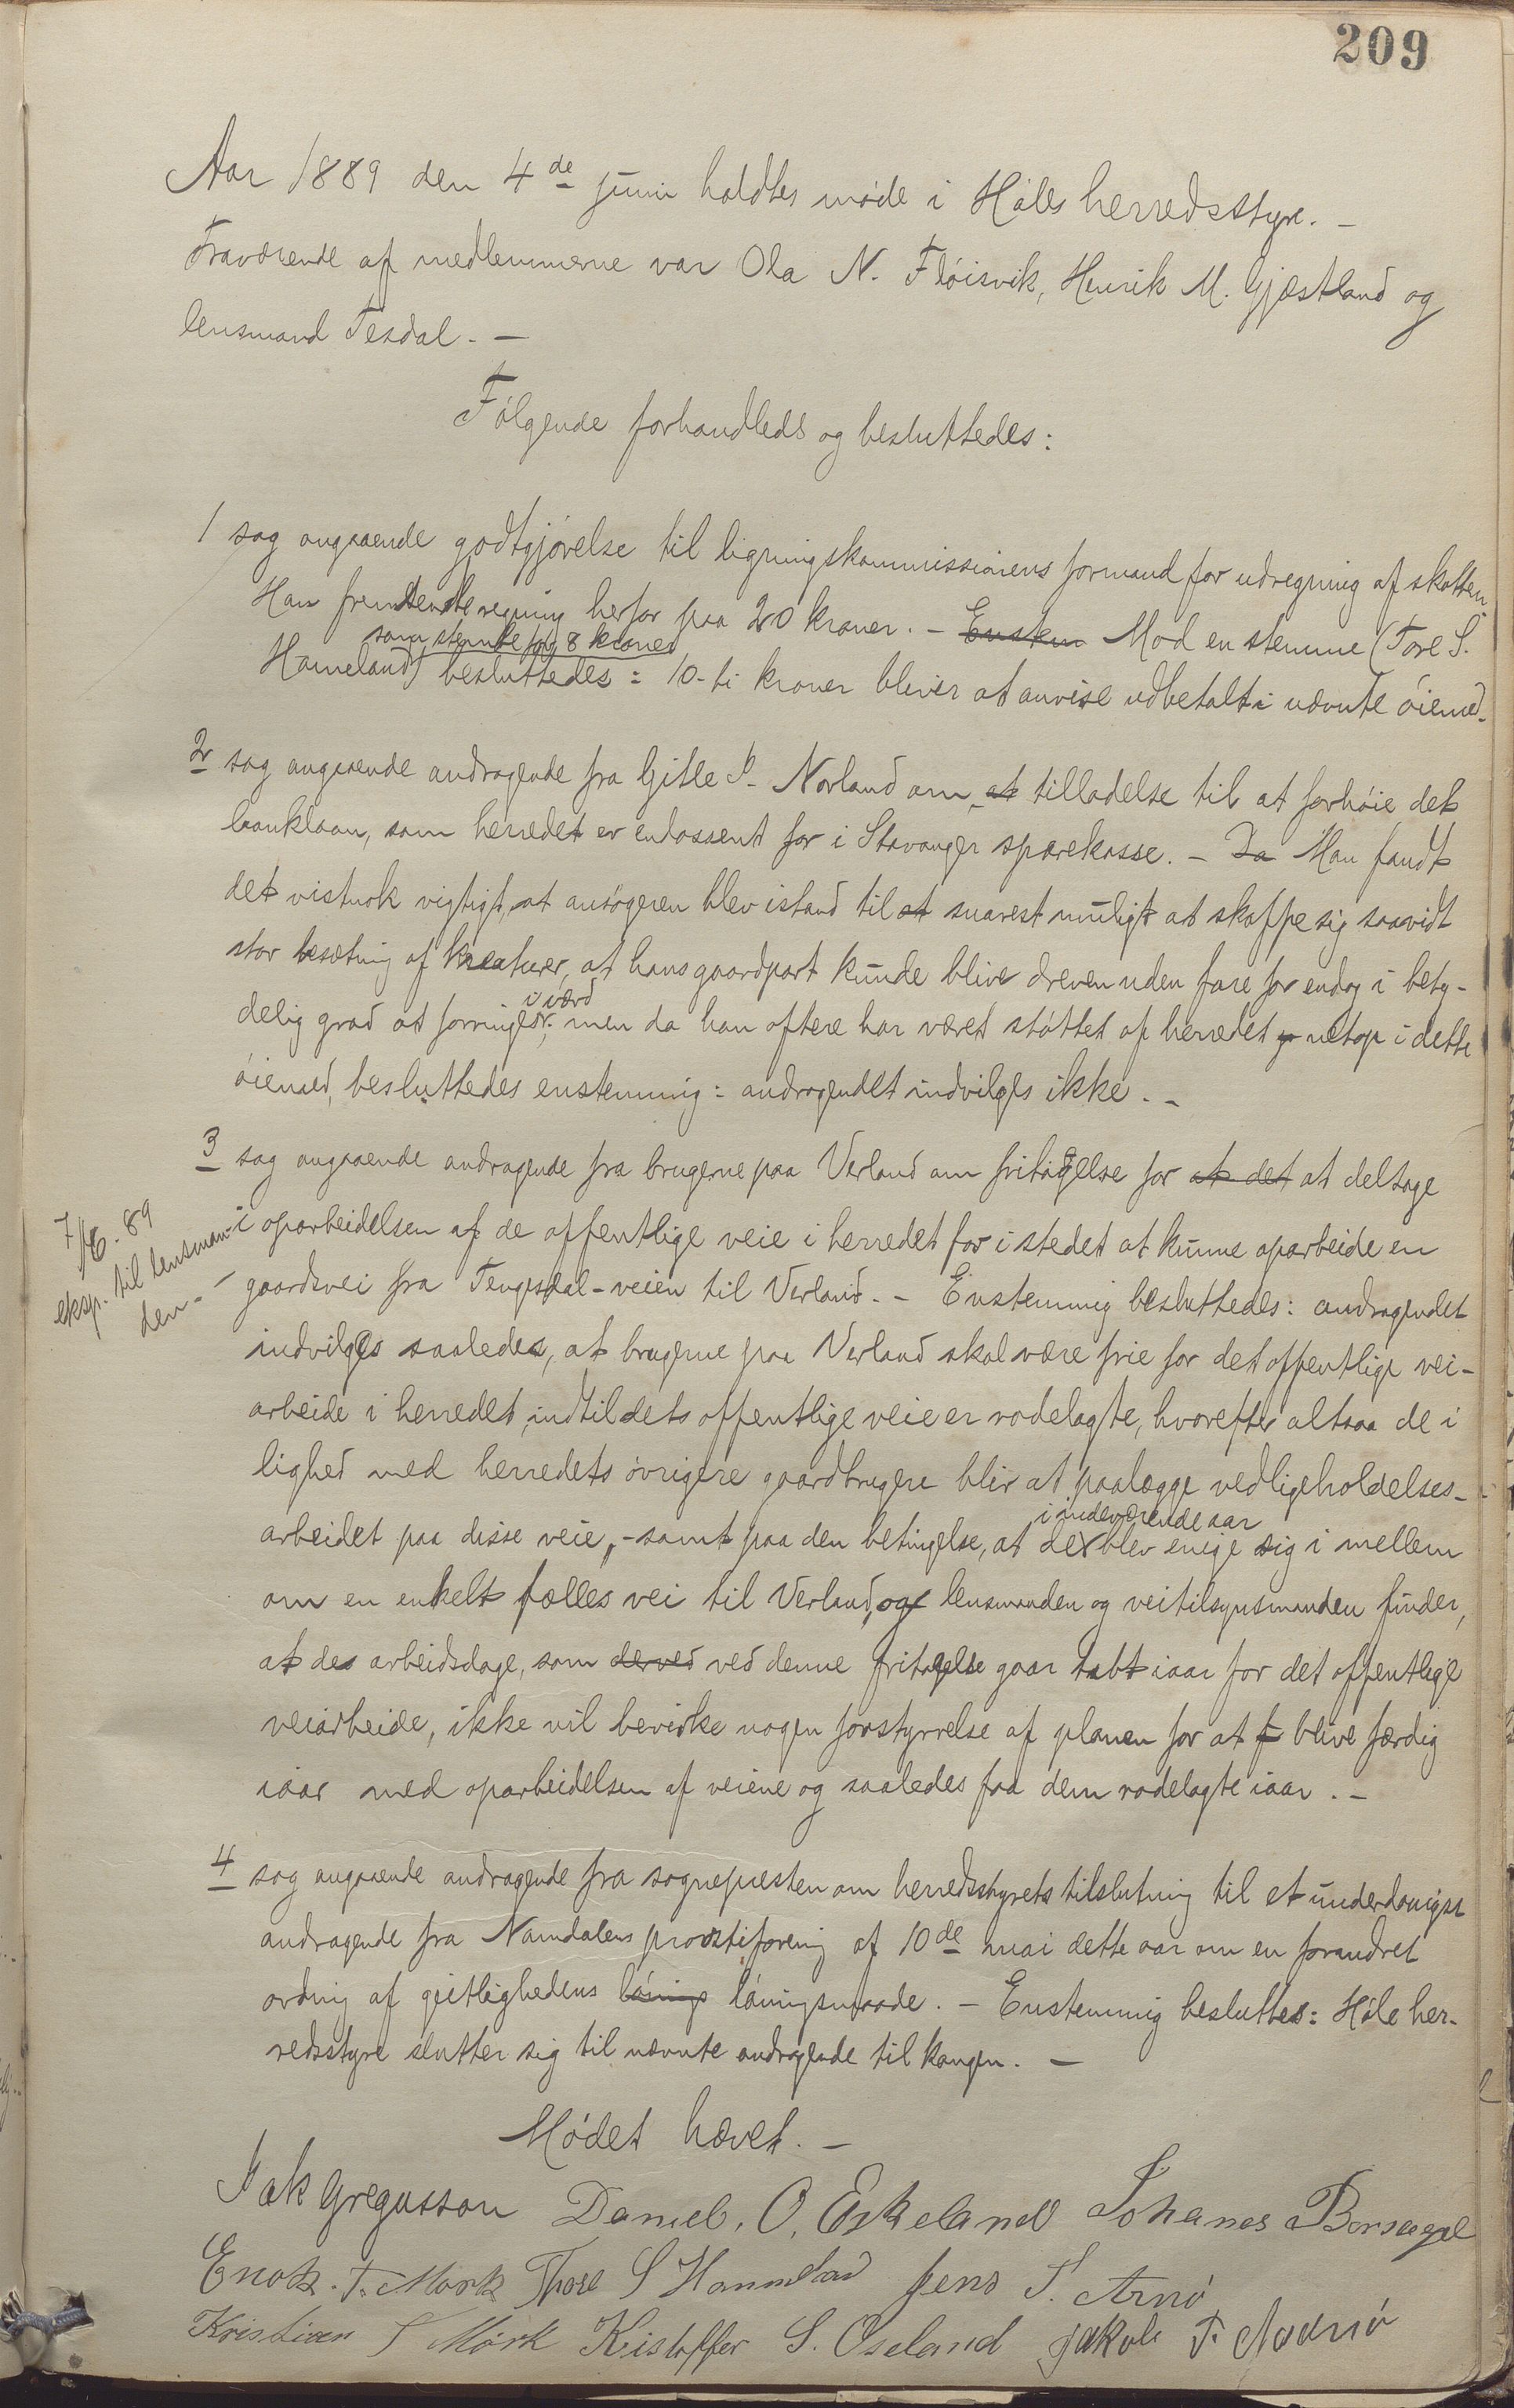 209
Aar 1889 den 4de juni holdtes møde i Høles herredsstyre. –
Fraværende af medlemmerne var Ola N. Fløisvik, Henrik M. Gjæstland og
lensmand Tesdal. –
Følgende forhandleds og besluttedes:
1 sag angaaende godtgjørelse til ligningskommissionens formand for udregning af skatten.
Han fremsendte regning herfor paa 20 kroner. – Enstem Mod en stemme (Tore S.
som stemte for 8 kroner
Hameland) besluttedes: 10 – ti kroner bliver at anvise udbetalt i nævnte øiemed.
2 sag angaaende andragende fra Gitle P. Norland om at tilladelse til at forhøie det
banklaan, som herredet er endossent for i Stavanger sparekasse. – Da Man fandt
det vistnok vigtigt, at ansøgeren blev istand til at snarest muligt at skaffe sig saavidt
stor besætning af kreaturer, at hans gaardpart kunde blive dreven uden fare for endog i bety-
i værd
delig grad at forringes; men da han oftere har været støttet af herredet netop i dette
øiemed, besluttedes enstemmig: andragendet indvilges ikke. –
3 sag angaaende andragende fra brugerne paa Verland om fritagelse for at det at deltage
7/6-89
eksp. til lensman-
den. –
i oparbeidelsen af de offentlige veie i herredet for i stedet at kunne oparbeide en
gaardsvei fra Tengesdal-veien til Verland. – Enstemmig besluttedes: andragendet
indvilges saaledes, at brugerne paa Verland skal være frie for det offentlige vei-
arbeide i herredet, indtil dets offentlige veie er rodelagte, hvorefter altsaa de i
lighed med herredets øvrigere gaardbrugere blir at paalægge vedligeholdelses-
i indeværende aar
arbeidet paa disse veie, – samt paa den betingelse, at de blev enige sig i mellem
om en enkelt fælles vei til Verland, og lensmanden og veitilsynsmanden finder,
at des arbeidsdage, som derved ved denne fritagelse gaar tabt iaar for det offentlige
veiarbeide, ikke vil bevirke nogen forstyrrelse af planen for at f blive færdig
iaar med oparbeidelsen af veiene og saaledes faa dem rodelagte iaar. –
4 sag angaaende andragende fra sognepresten om herredsstyrets tilslutning til et underdanigst
andragende fra Namdalens prostiforening af 10de mai dette aar om en forandret
ordnig af geitlighedens lønings lønningsmaade. – Enstemmig besluttes: Høle her-
redsstyre slutter sig til nævnte andragende til kongen. –
Mødet hævet. –
Jak Gregusson Daniel. O. Eskeland Johanes Bersagel
Enok. T. Mørk Thore S Hammeland Jens T. Arnø
Kristian S Mørk Kristoffer S. Oseland Jakob T.